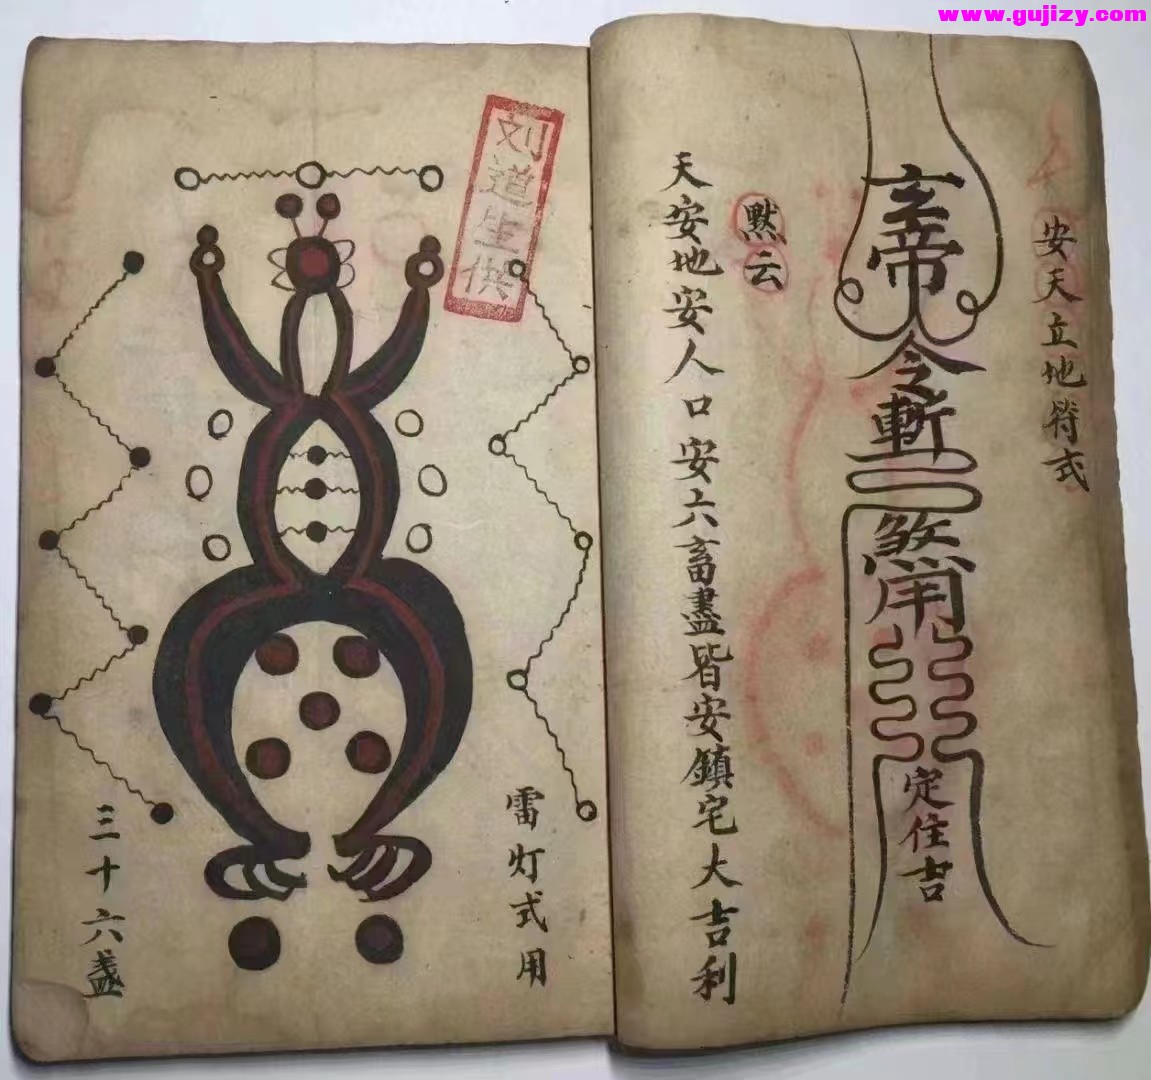 www.gujizy.com
安天立地符式
玄帝令斬煞用
定住吉
默云
天安地安人口安六畜盡皆安鎮宅大吉利
刘道生供
雷灯式用
三十六盏